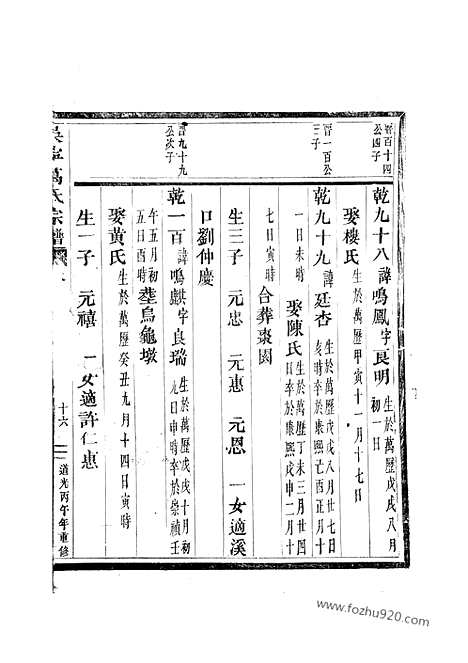 晋百十四
公四子
乾九十八諱鳴鳳字良明生於萬歷戊戌八月
初一日
娶樓氏生於萬歷甲寅十一月十七日
晋一百公
三子
乾九十九諱廷杏生於萬歷戊戌八月廿七日
亥時卒於康熙亡酉正月十
一日未時
娶陳氏生於萬歷丁未三月廿四
日卒於康熙戊申二月十
七日寅時
合葬棗園
生三子 元忠 元惠 元恩 一女適溪
口劉仲慶
晋九十九
公次子
乾一百諱鳴麒字良瑞生於萬歷戊戌十月初
九日申時卒於崇禎壬
午五月初
五日酉時
葬烏龜墩
娶黃氏生於萬歷癸丑九月十四日寅時
生一子 元禧 一女適許仁惠
吳寧葛氏宗譜
十六
道光丙午年重修
www.fozhu920.com